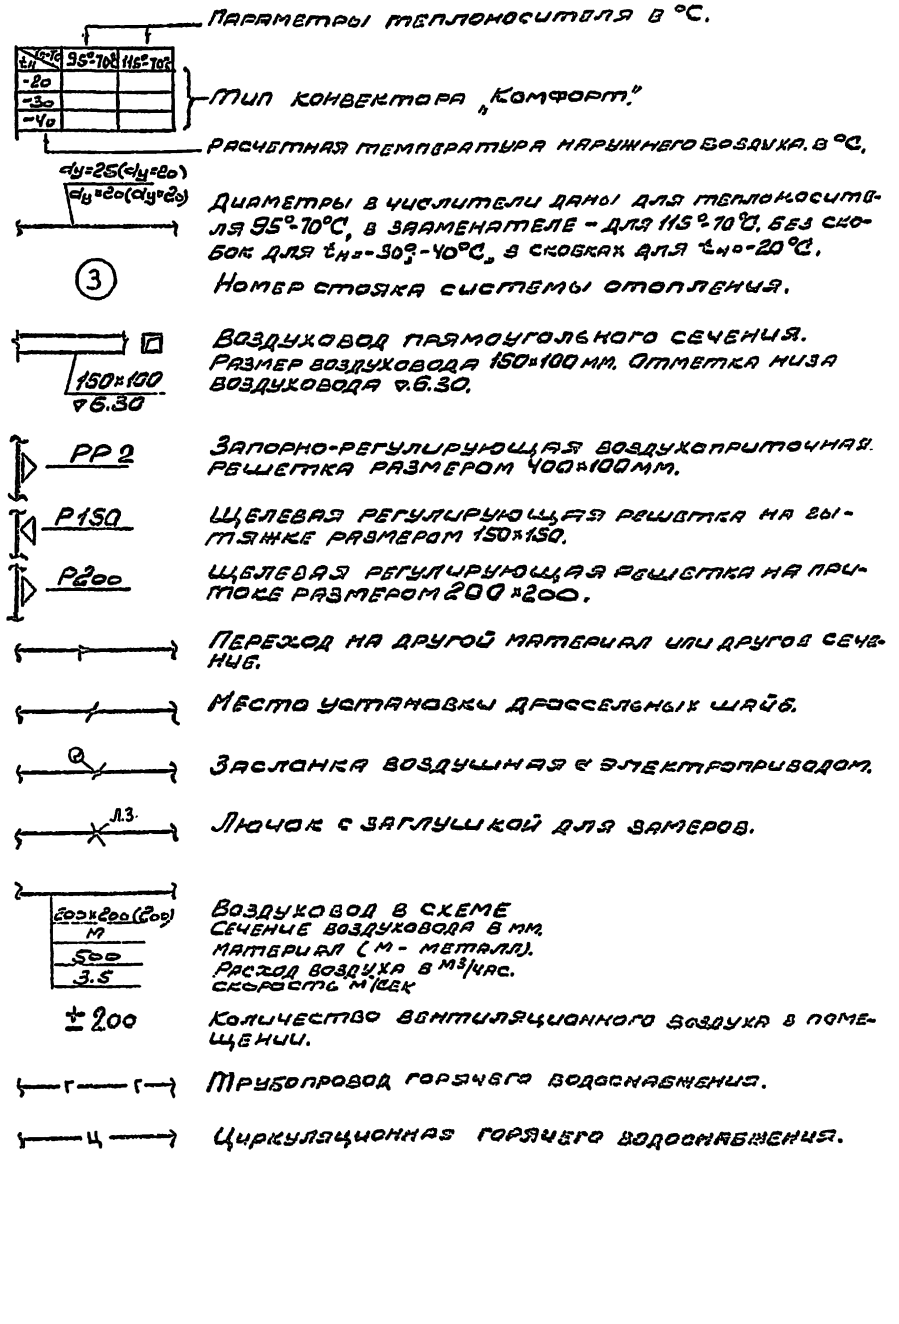 Параметры теплоносителя в °С.
tн t5-70 95°-70° 115°-70°
-20
-30
-40
Тип конвектора „Комфорт."
Расчетная температура наружнего воздуха. в °С.
dу=25(dу=20)
dу=20(dу=20)
Диаметры в числители даны для теплоносите-
ля 95°-70°С, в зааменателе - для 115°-70°С. Без ско-
бок для tн=-30°;-40°С., в скобках для tн=-20°С.
3
Номер стояка системы отопления.
Воздуховод прямоугольного сечения.
Размер воздуховода 150×100 мм. Отметка низа
воздуховода ▽.6.30.
150×100
▽6.30
РР2
Запорно-регулирующая воздухоприточная.
решетка размером 400×100мм.
Р150
Щелевая регулирующая решетка на вы-
тяжке размером 150×150.
Р200
Щелевая регулирующая решетка на при-
токе размером 200×200.
Переход на другой материал или другое сече-
ние.
Место установки дроссельных шайб.
Заслонка воздушная с электроприводом.
Л.З.
Лючок с заглушкой для замеров.
200×200(200)
М
500
3.5
Воздуховод в схеме
Сечение воздуховода в мм.
Материал (М - металл).
Расход воздуха в м³/час.
Скорость м/сек
± 200
Количество вентиляционного воздуха в поме-
щении.
Г Г
Трубопровод горячего водоснабжения.
Ц
Циркуляционная горячего водоснабжения.